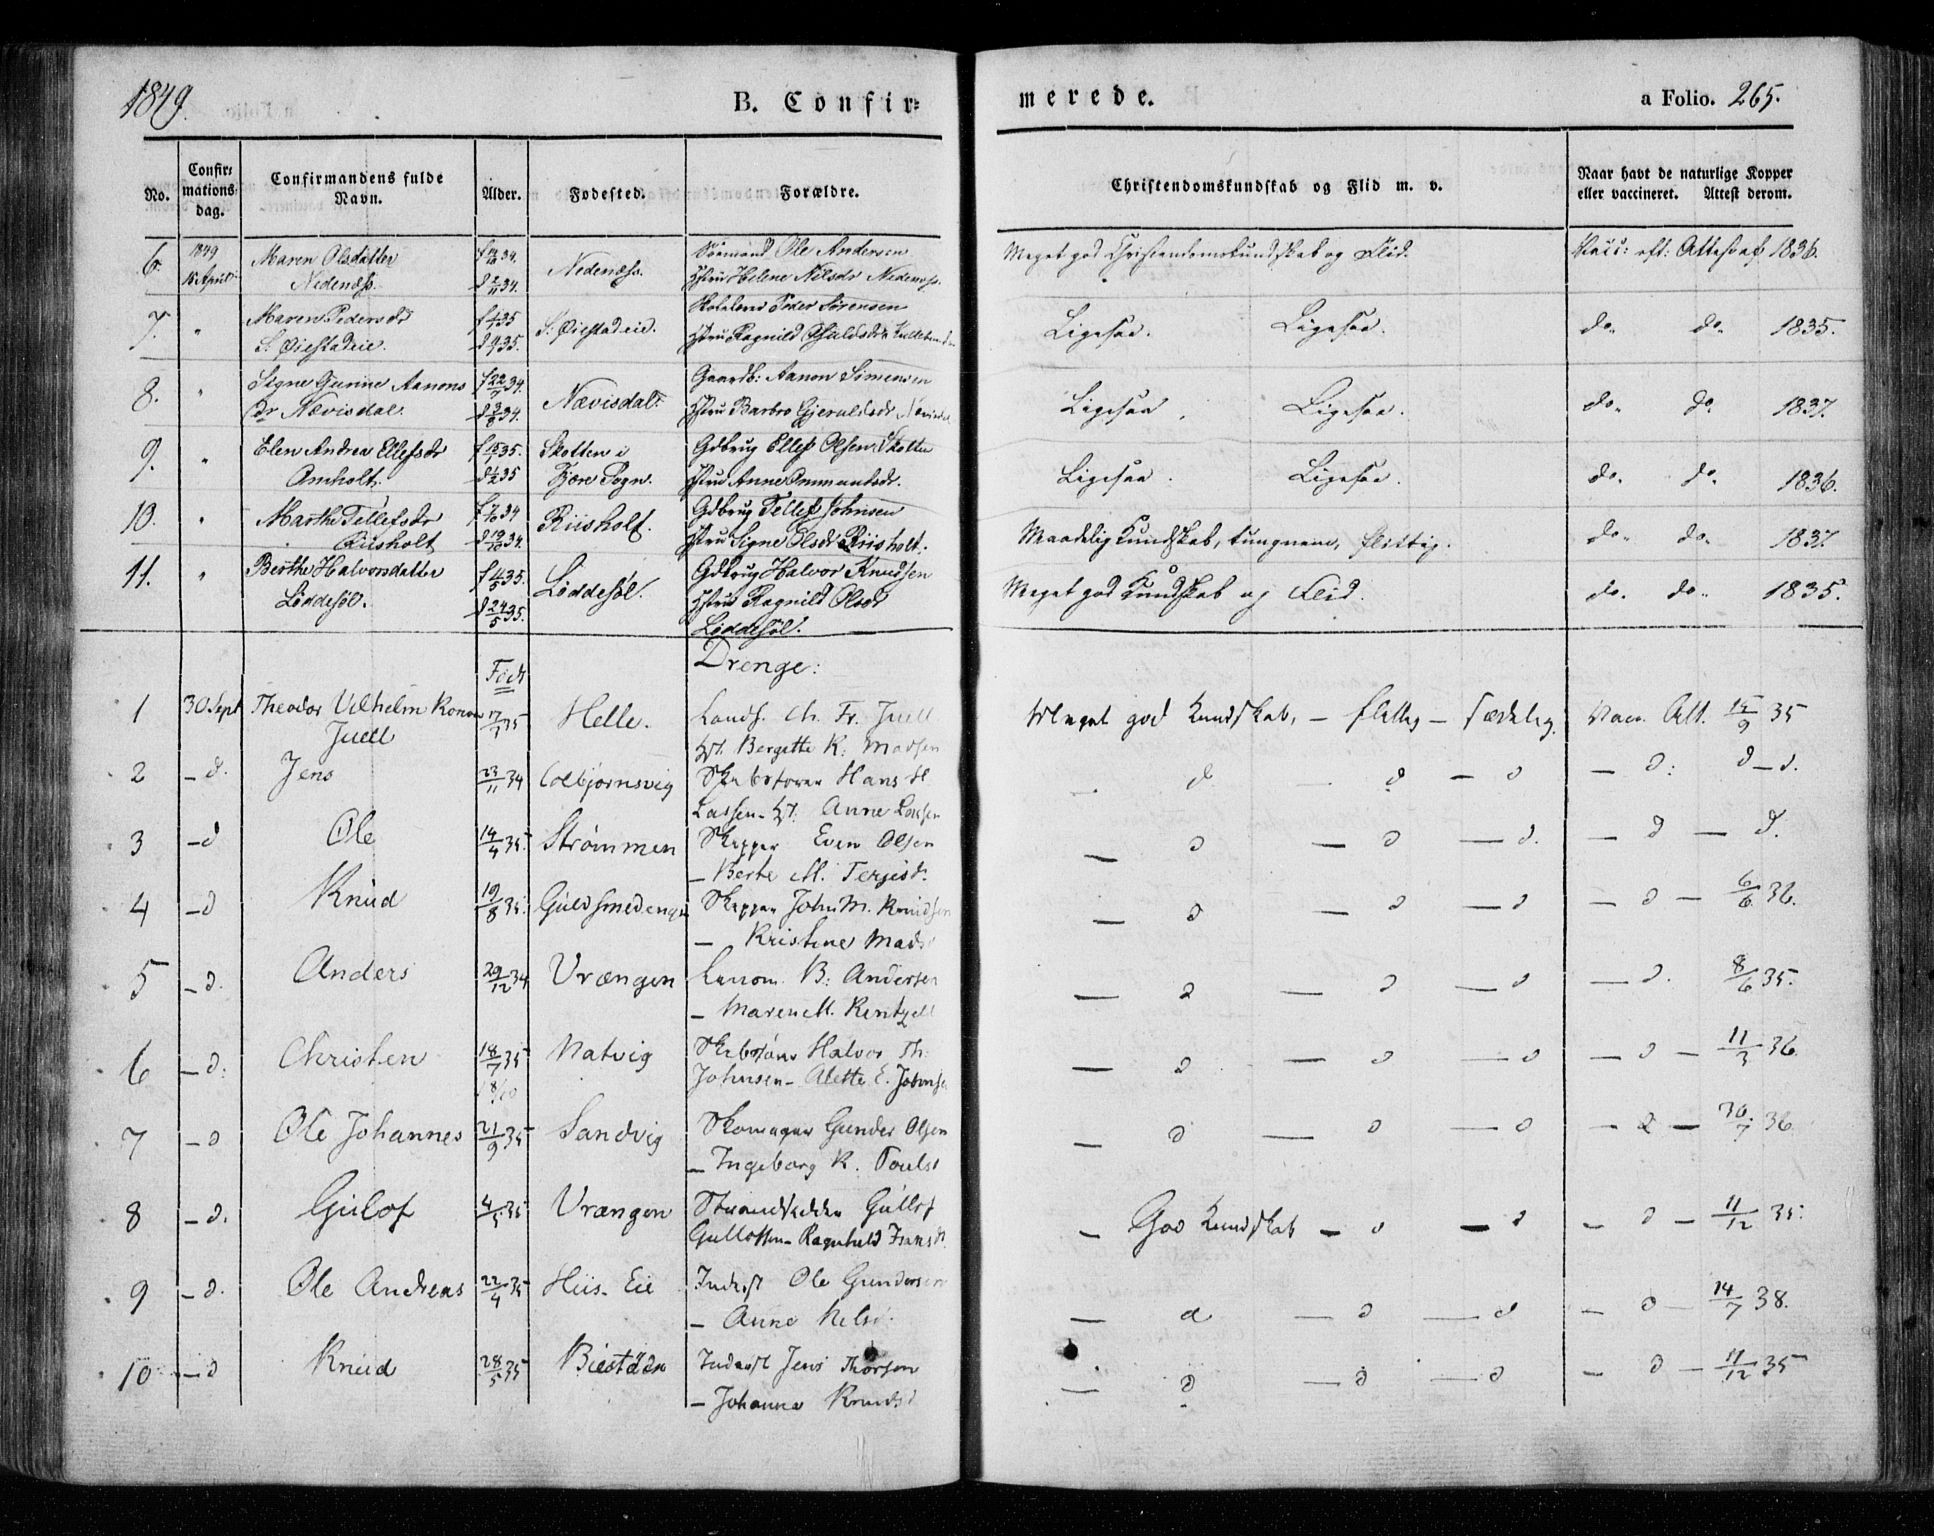 1849. B. Confir= merede. a Folio. 265.
No. Confir= mations dag. Confirmandens fulde Navn. Alder. Fodested. Forældre. Christendomskundskab og Flid m. v. Naar havt de naturlige Kopper eller vaccineret. Attest derom.
6. 1849 15 April Maren Olsdatter Nedenæss. Nedenæss. Ole Andersen
Hstru Helene Nilsdr Nedenæss. Meget god Christendomskundskab og Flid. Vacc: eft: Attest af 1836.
7. " Maren Pedersdr S. Øiestadeie. S. Øiestadeie. Peder Sørensen
Hstru Ragnild Ligesaa. Ligesaa. do. do. 1835.
8. " Signe Gurine Aanons dr Nævisdal. f 22/7 34. Nævisdal. Gaardb: Aanon Simensen
Hstru Barbro Gjeruldsdr Ligesaa. Ligesaa. do. do. 1837.
9. " Elen Andrea Ellefsdr Amholt. Skotten i Fjære Sogn. Gdbrug Ellef Olsen Skotten
Hstru Anne Ommundsdr. Ligesaa. Ligesaa. do. do. 1836.
10. " Marthe Tellefsdr Riisholt f 7/10 34 d 19/10 34. Riisholt. Gdbrug Tellef Johnsen
Hstru Signe Olsdr Riisholt. Maadelig Kundskab, tungnem, flittig. do. do. 1837.
11. " Berthe Halvorsdatter Løddesøl. f 4/5 35. d 24/5 35. Løddesøl. Gdbrug Halvor Knudsen
Hstru Ragnild Olsdr
Løddesøl. Meget god Kundskab og Flid. do. do. 1835.
Født Drenge:
1 30 Sept Theodor Vilhelm Juell 17/7 35 Helle. Ch. Fr. Juell
Hst. Bergitte K. Madsen Meget god Kundskab, — flittig — sædelig. Vacc. Att. 15/9 35
2 — d. Jens 23/11 34 Colbjørnsvig Hans H
Lassen — Hst. Anne — d — d — d — d: d — d.
3 — d Ole 14/4 35. Strømmen Skipper Even Olsen
— Berte M. Terjesd. — d — d — d. — d — d.
4 — d Knud 19/8 35. Guldsmedengen Skipper John M. Knudsen
— Kristine Mads — d — d — d — d — 6/6 36.
5 — d. Anders 29/12 34 Vrængen B. Andersen
— Maren M. Rentzell — d — d — d — d. 8/6 35.
6 — d. Christen 18/7 35 Natvig Halvor Th.
Johnsen — Alette E. — d — d — d — d — 11/3 36.
7 — d Ole Johannes 21/9 35 Sandvig Skomager Gunder Olsen
— Ingeborg K. — d — d — d — d — 7 36
8 — d. Gulof 4/5 35 Vrængen Strandsidder Gullof
Gullofsen — Ragnhild — God Kundskab — d — d — d — 11/12 35.
9 — d. Ole Andreas 22/4 35 Hiis. Eie Inderst Ole Gundersen
— Anne Nelsd. — d — d — d — d — 14/7 38.
10 — d Knud 28/5 35 Biestøen Inderst Jens Thorsen
— Johanna Knudsd — d — d — d — d — 11/12 35